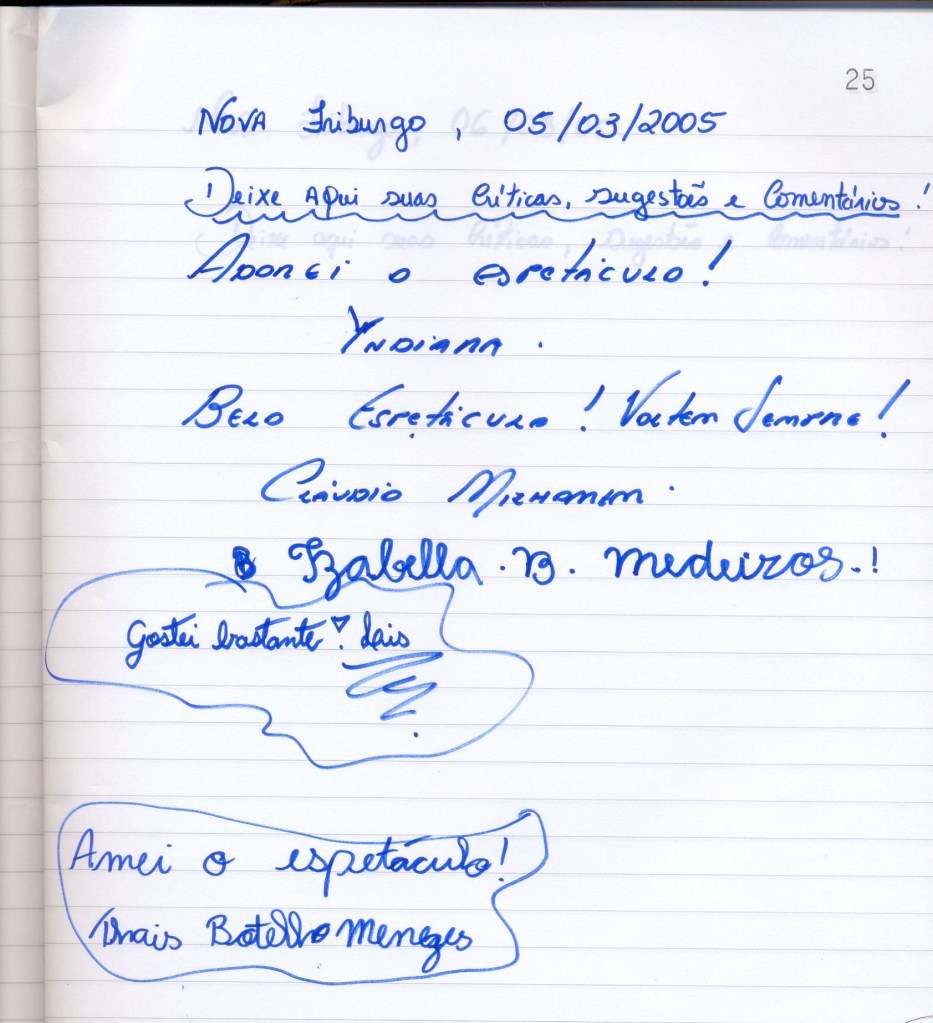 25
NOVA Friburgo, 05/03/2005
Deixe Aqui suas Críticas, sugestões e Comentários!
ADOREI o espetáculo!
YNDIANA.
BELO ESPETÁCULO! Voltem Sempre!
CLÁUDIO
B Izabella. B. Medeiros.!
Gostei bastante! Lais
Amei o espetáculo!
Thais Botelho Menezes